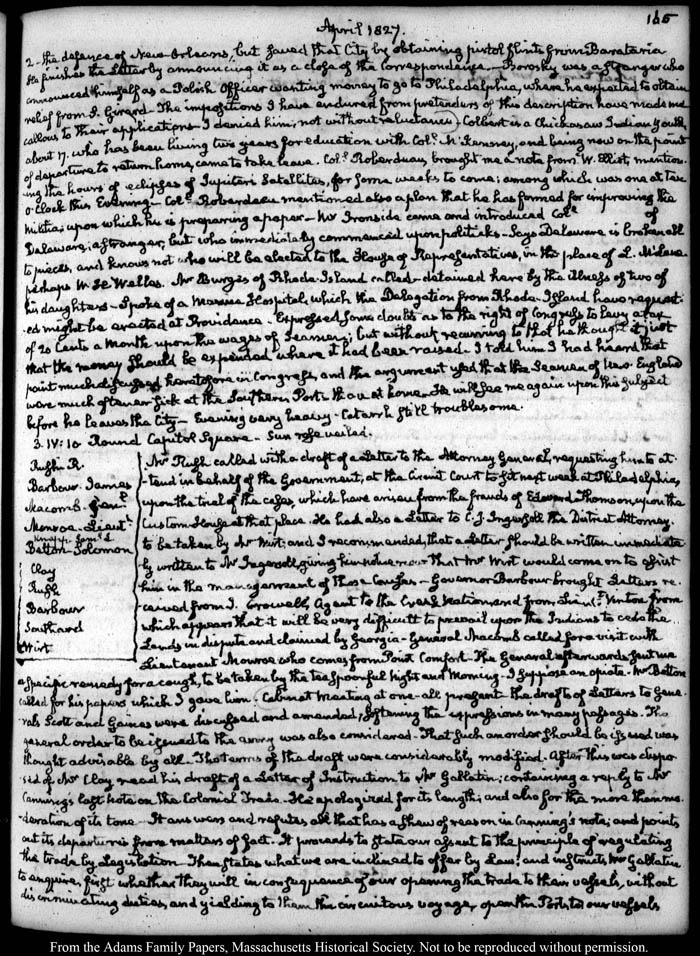 April 1827.
165
2. the defence of New-Orleans, but saved that City by obtaining pistol flints from Barataria
He finishes the Letter by announcing it as a close of the correspondence. Borosky was a stranger who
announced himself as a Polish Officer wanting money to go to Philadelphia, where he expected to obtain
relief from S. Girard. The impositions I have endured from pretenders of this description have made me
callous to their applications. I denied him; not without reluctance. Colbert is a Chickasaw Indian youth,
about 17. who has been living two years for education with Col.l McKenney, and being now on the point
of departure to return home, came to take leave. Col.l Roberdeau, brought me a note from W. Elliot, mention-
ing the hours of eclipses of Jupiter's Satellites, for some weeks to come; among which was one at ten
O'Clock this Evening. Col.l Roberdeau mentioned also a plan that he has formed for improving the
Militia; upon which he is preparing a paper. Mr Ironside came and introduced Col.l of
Delaware; a stranger, but who immediately commenced upon politicks. Says Delaware is broken all
to pieces, and knows not who will be elected to the House of Representatives, in the place of L. McLane
perhaps W. H. Welles. Mr Burges of Rhode-Island called. detained here by the illness of two of
his daughters. Spoke of a Marine Hospital, which the Delegation from Rhode-Island have request-
-ed might be erected at Providence. Expressed some doubts as to the right of Congress to levy a tax
of 20 Cents a Month upon the wages of Seamen; but without recurring to that he thought it just
that the money should be expended where it had been raised. I told him I had heard that
point much discussed heretofore in Congress, and the argument used that the Seamen of New-England
were much oftener sick at the Southern Ports than at home. He will see me again upon this subject
before he leaves the City. Evening very heavy. Catarrh still troublesome.
3. IV:10 Round Capitol Square. Sun rose veiled.
Rush. R.
Barbour. James
Macomb. Gen.l
Monroe. Lieut.t
Knapp. Sam.l L
Betton. Solomon
Clay
Rush
Barbour
Southard
Wirt
Mr Rush called with a draft of a Letter to the Attorney General, requesting him to at-
tend in behalf of the Government, at the Circuit Court to sit next week at Philadelphia,
upon the trial of the cases, which have arisen from the frauds of Edward Thomson, upon the
Custom House at that place. He had also a Letter to C. J. Ingersoll the District Attorney,
to be taken by Mr Wirt; and I recommended, that a Letter should be written immediate
ly written to Mr Ingersoll, giving him notice that Mr Wirt would come on to assist
him in the management of those Causes. Governor Barbour brought Letters re-
ceived from J. Crowell, Agent to the Creek Nation, and from Lieu.t Vinton from
which it appears that it will be very difficult to prevail upon the Indians to cede the
Lands in dispute and claimed by Georgia. General Macomb called for a visit with
Lieutenant Monroe who comes from Point Comfort. The General afterwards sent me
a specific remedy for a cough, to be taken by the teaspoonful Night and Morning. I suppose an opiate. Mr Betton
called for his papers which I gave him. Cabinet Meeting at one. all present. the drafts of Letters to Gene-
rals Scott and Gaines were discussed and amended; softening the expressions in many passages. The
general order to be issued to the army was also considered. That such an order should be issued was
thought advisable by all. The terms of the draft were considerably modified. After this was dispo-
sed of Mr Clay read his draft of a Letter of Instruction to Mr Gallatin; containing a reply to Mr
Canning's last Note on the Colonial Trade. He apologized for its length; and also for the more than mo-
deration of its tone. It answers and refutes all that has a shew of reason in Canning's note; and points
out its departures from matters of fact. It proceeds to state our assent to the principle of regulating
the trade by Legislation. Then states what we are inclined to offer by Law; and instructs Mr Gallatin
to enquire, first whether they will in consequence of our opening the trade to their vessels, without
discriminating duties, and yielding to them the circuitous voyage, open the Ports to our vessels
From the Adams Family Papers, Massachusetts Historical Society. Not to be reproduced without permission.